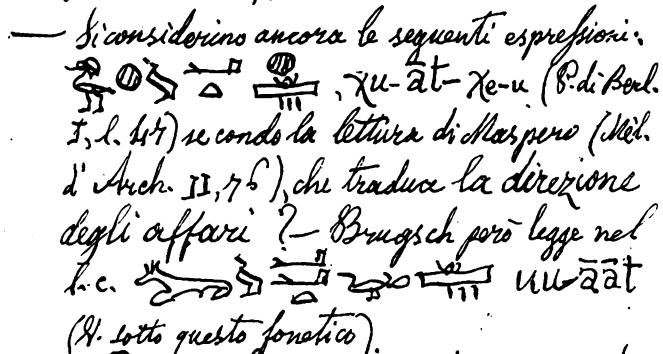 — Si considerino ancora le seguenti espressioni:
, χu-āt-χe-u (P. di Berl.
I, l. 47) secondo la lettura di Maspero (Mél.
d'Arch. II, 76), che traduce la direzione
degli affari? — Brugsch però legge nel
l.c. uu-āāt
(V. sotto questo fonetico)